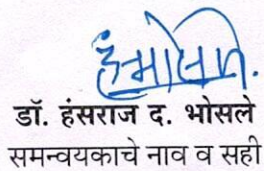 डॉ. हंसराज द. भोसले
समन्वयकाचे नाव व सही